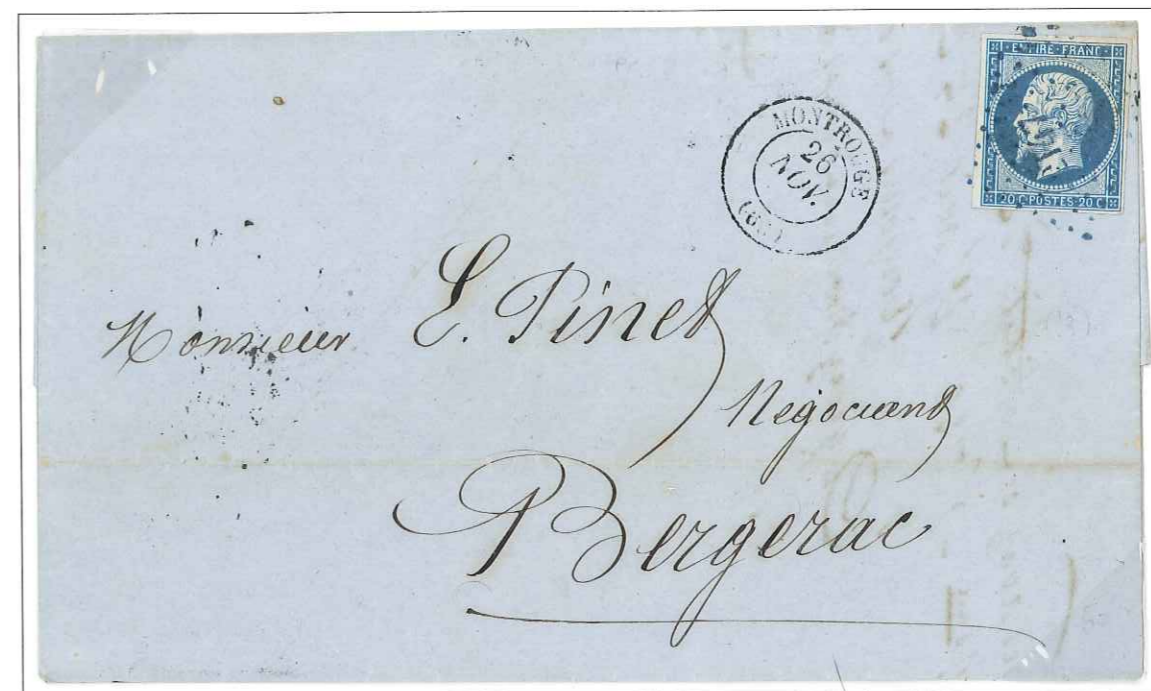 EMPIRE FRANC
20 C POSTES 20 C
MONTROUGE
26
NOV.
(60)
Monsieur E. Pinet
Négociant
Bergerac